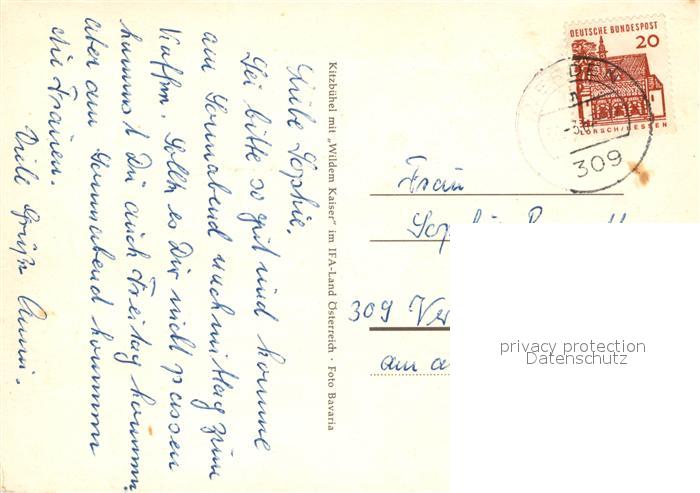 Liebe Sophie.
Sei bitte so gut und komme
am Sonnabend nachmittag zum
Kaffee. Sollte es Dir nicht passen
kannst Du auch Freitag kommen.
aber am Sonnabend kommen
die Frauen.
Viele Grüße Anni.
Kitzbühel mit „Wildem Kaiser" im IFA-Land Österreich · Foto Bavaria
DEUTSCHE BUNDESPOST
20
LORSCH/HESSEN
309
Frau
309 Ver
am a
privacy protection
Datenschutz